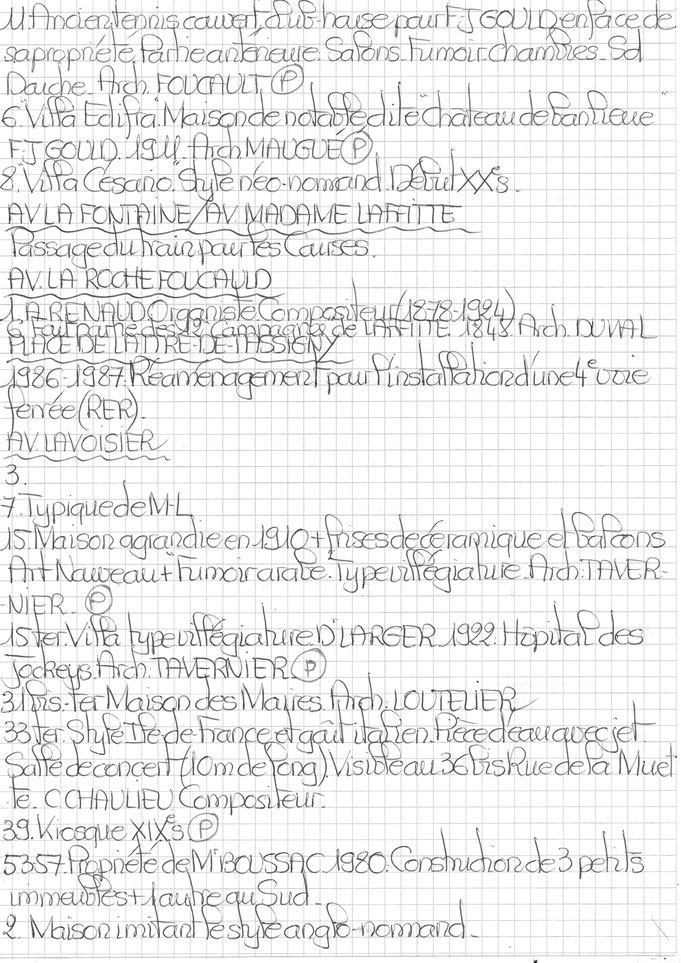 11. Ancien tennis couvert. Club-house pour F.J GOULD en face de
sa propriété. Partie antérieure. Salons. Fumoir. Chambres. Sol
Dauche. Arch. FOUCAULT. (P)
6. "Villa Edifia". Maison de notable dite "Château de banlieue"
F.J GOULD. 1911. Arch. MAUGUÉ (P)
8. "Villa Césario". Style néo-normand. Début XXe s.
AV LA FONTAINE/AV. MADAME LAFFITTE
Passage du train pour les Courses.
AV. LA ROCHEFOUCAULD
1. A. RENAUD Organiste Compositeur (1878-1924)
6. Fait partie des 12 Campagnes de LAFFITTE. 1848. Arch. DUVAL
PLACE DE LATTRE-DE-TASSIGNY
1986-1987. Réaménagement pour l'installation d'une 4e voie
ferrée (RER).
AV. LAVOISIER
3.
7. Typique de M-L
15. Maison agrandie en 1910 + frises de céramique et balcons
Art Nouveau + Fumoir arabe. Type villégiature. Arch. TAVER-
-NIER. (P)
15 ter. Villa type villégiature D'LARGER. 1922. Hôpital des
Jockeys. Arch. TAVERNIER (P)
31 bis-ter Maison des Maires. Arch. LOUTELIER
33 ter. Style Ile-de-France et goût italien. Pièce d'eau avec jet.
Salle de concert (10m de long). Visible au 36 bis Rue de la Muet
te. C CHAULIEU Compositeur.
39. Kiosque XIXe s (P)
53 57. Propriété de Mr BOUSSAC. 1980. Construction de 3 petits
immeubles + 1 autre au Sud. (P)
2. Maison imitant le style anglo-normand.